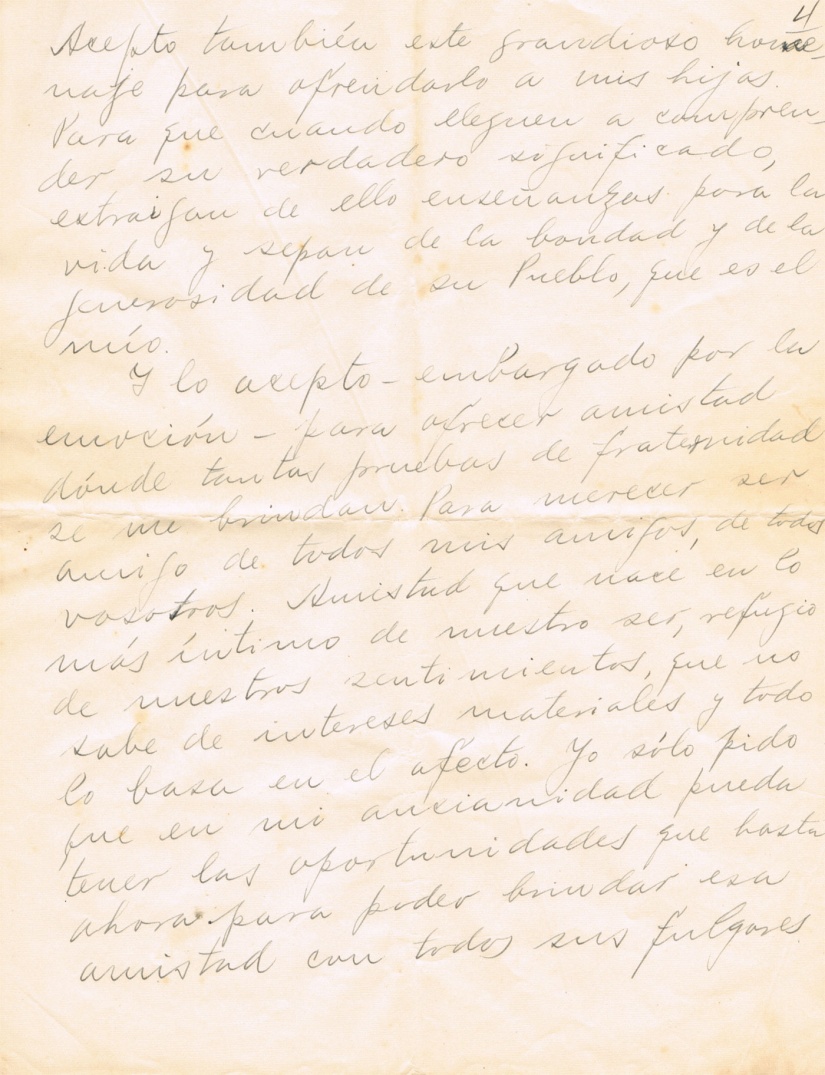 4
Acepto también este grandioso home-
naje para ofrendarlo a mis hijas.
Para que cuando lleguen a compren-
der su verdadero significado,
extraigan de ello enseñanzas para la
vida y sepan de la bondad y de la
generosidad de su Pueblo, que es el
mío.
Y lo acepto - embargado por la
emoción - para ofrecer amistad
dónde tantas pruebas de fraternidad
se me brindan. Para merecer ser
amigo de todos mis amigos, de todos
vosotros. Amistad que nace en lo
más íntimo de nuestro ser, refugio
de nuestros sentimientos, que no
sabe de intereses materiales y todo
lo basa en el afecto. Yo sólo pido
que en mi ancianidad pueda
tener las oportunidades que hasta
ahora para poder brindar esa
amistad con todos sus fulgores